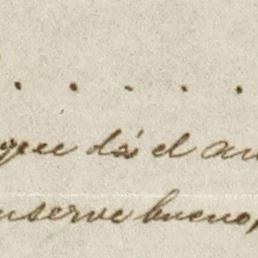 . . . . .
que dá el
conserve bueno,